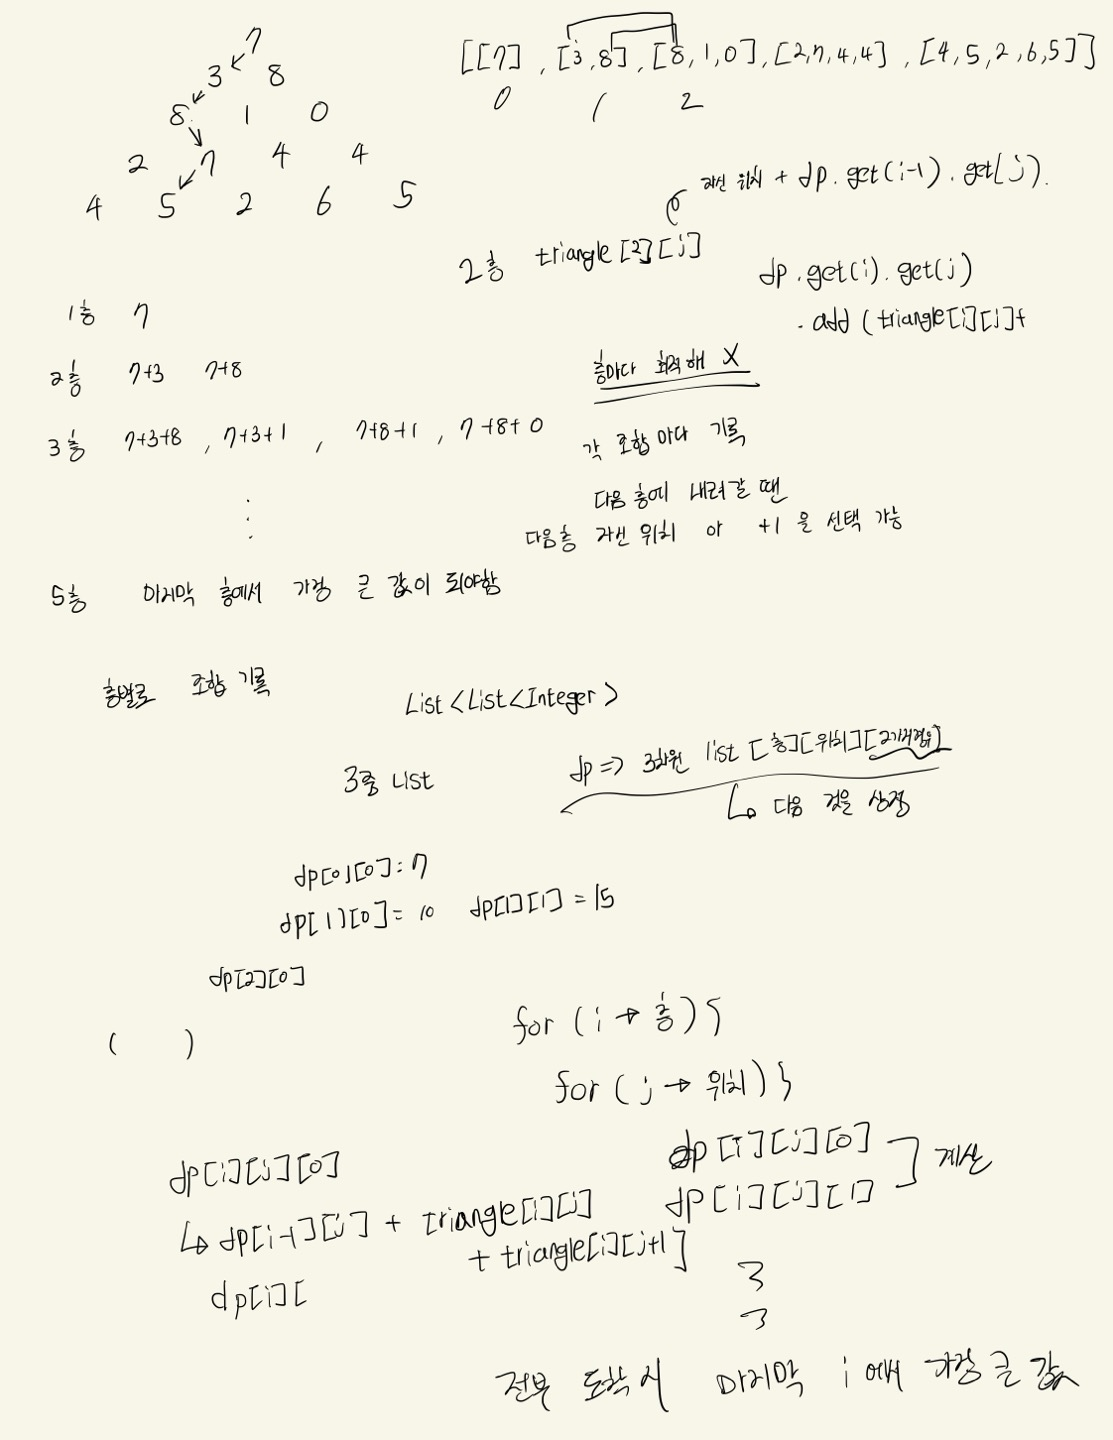 7
3 8
8 1 0
2 7 4 4
4 5 2 6 5
[[7] , [3,8], [8,1,0], [2,7,4,4] , [4,5,2,6,5]]
0 1 2
자신 위치 + dp.get(i-1).get(j).
2층 triangle[2][j]
dp.get(i).get(j)
.add(triangle[i][j]+
1층 7
2층 7+3 7+8
3층 7+3+8 , 7+3+1 , 7+8+1 , 7+8+0
층마다 최적해 X
각 조합마다 기록
다음 층에 내려갈 땐
다음층 자신 위치 아 +1 을 선택 가능
5층 마지막 층에서 가장 큰 값이 되야함
층별로 조합 기록
List<List<Integer>
3중 List
dp => 3차원 list [층][위치][2가지경우]
↳ 다음 것을 상정
dp[0][0]=7
dp[1][0]= 10 dp[1][1] = 15
dp[2][0]
( )
for (i → 층) {
for (j → 위치) {
dp[i][j][0]
dp[i][j][1]
계산
}
}
dp[i][j][0]
↳ dp[i-1][j] + triangle[i][j]
+ triangle[i][j+1]
dp[i][
전부 도착 시 마지막 i 에서 가장 큰 값